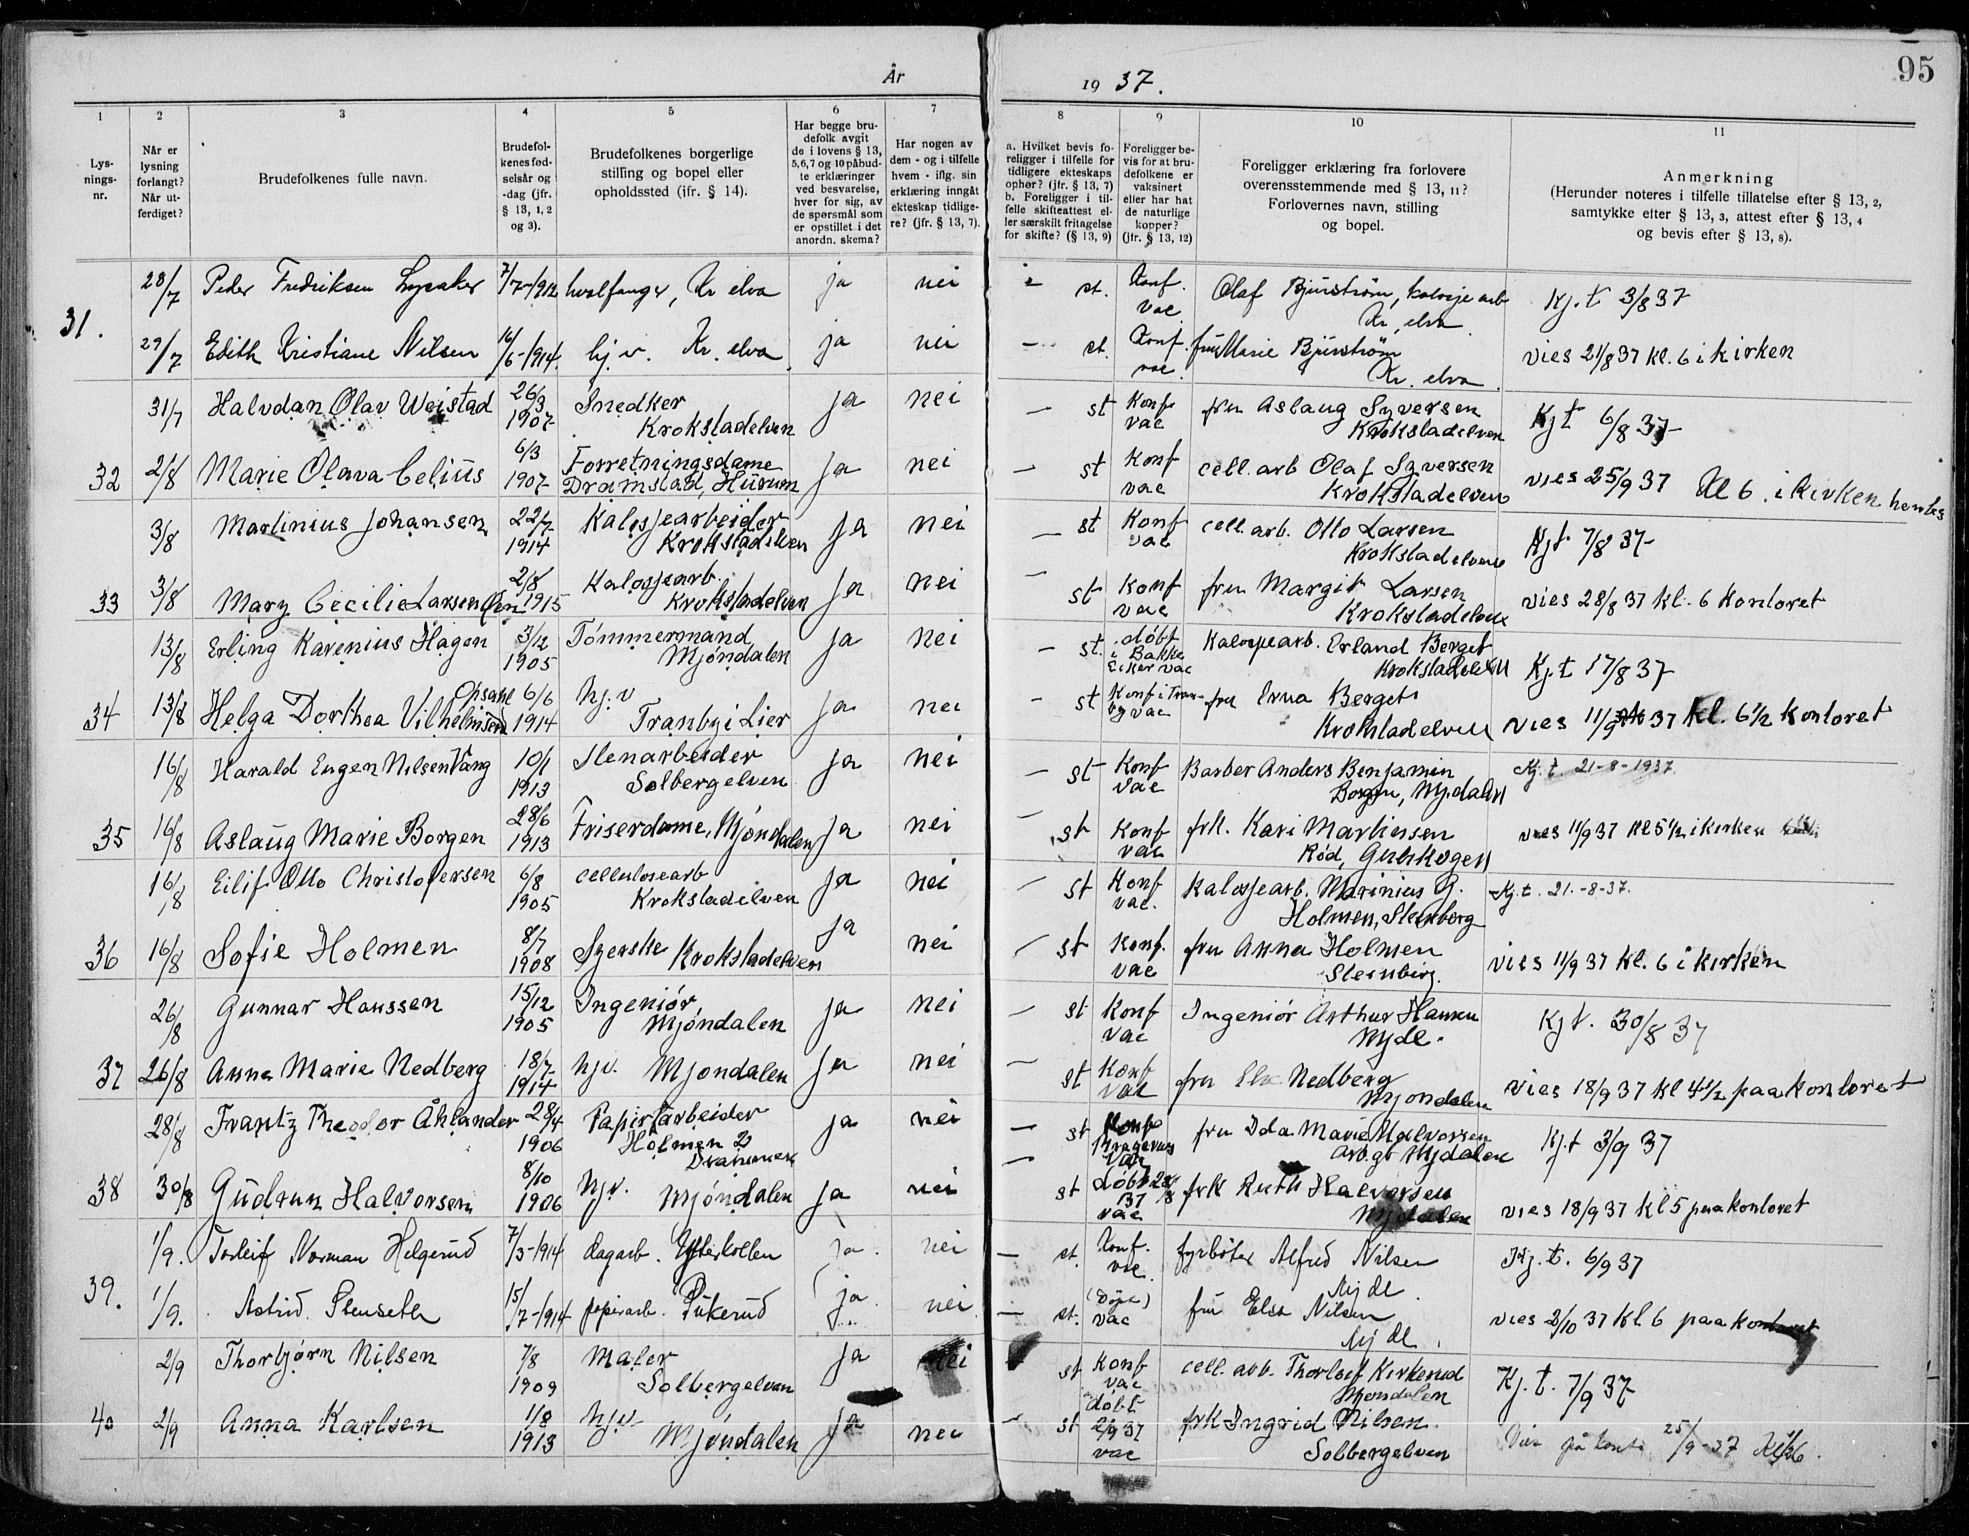 År
19 37.
95
1
2
3
4
5
6
7
8
9
10
11
Lys-
nings-
nr.
Når er
lysning
forlangt?
Når ut-
ferdiget?
Brudefolkenes fulle navn.
Brudefol-
kenes fød-
selsår og
-dag (jfr.
§ 13, 1, 2
og 3).
Brudefolkenes borgerlige
stilling og bopel eller
opholdssted (jfr. § 14).
Har begge bru-
defolk avgit
de i lovens § 13,
5,6,7 og 10 påbud-
te erklæringer
ved besvarelse,
hver for sig, av
de spørsmål som
er opstillet i det
anordn. skema?
Har nogen av
dem - og i tilfelle
hvem - iflg. sin
erklæring inngått
ekteskap tidlige-
re? (jfr. § 13, 7).
a. Hvilket bevis fo-
religger i tilfelle for
tidligere ekteskaps
ophør? (jfr. § 13, 7)
b. Foreligger i til-
felle skifteattest el-
ler særskilt fritagelse
for skifte? (§ 13, 9)
Foreligger be-
vis for at bru-
defolkene er
vaksinert
eller har hat
de naturlige
kopper?
(jfr. § 13, 12)
Foreligger erklæring fra forlovere
overensstemmende med § 13, 11?
Forlovernes navn, stilling
og bopel.
Anmerkning
(Herunder noteres i tilfelle tillatelse efter § 13, 2,
samtykke efter § 13, 3, attest efter § 13, 4
og bevis efter § 13, 8).
28/7 Peder Fredriksen Lysaker 7/7-1912 hvalfanger, Kr. elva ja nei st. Konf. vac. Olaf Bjurstrøm, kalosjearb Kr. elva Kj. t 3/8 37
31. 29/7 Edith Kristiane Nilsen 16/6-1914. hj. v. Kr. elva ja nei — st. Konf. vac. fru Marie Bjurstrøm Kr. elva. vies 21/8 37 kl. 6 i kirken
31/7 Halvdan Olav Weistad 26/3 1907 Snedker Krokstadelven ja nei — st Konf vac fru Aslaug Syversen Krokstadelven Kjt 6/8 37
32 2/8 Marie Olava Celius 6/3 1907 Forretningsdame Dramstad, Hurum ja nei — st Konf vac cell. arb Olaf Syversen Krokstadelven vies 25/9 37 Kl 6. i kirken hentes
3/8 Martinius Johansen 22/7 1914 Kalosjearbeider Krokstadelven ja nei — st Konf vac cell. arb. Otto Larsen Krokstadelven Kjt. 7/8 37
33 3/8 Mary Cecilie Larsen 2/8 1915 Kalosjearb. Krokstadelven ja nei — st Konf vac fru Margit Larsen Krokstadelven vies 28/8 37 kl. 6 kontoret
13/8 Erling Karenius Hagen 3/12 1905 Tømmermand Mjøndalen ja nei — st. døbt i Bakke Eiker vac Kalosjearb. Erland Berget Krokstadelven Kj. t 17/8 37
34 13/8 Helga Dorthea Vilhelmsen Opsahl 6/6 1914 hj. v Tranby i Lier ja nei — st Konf i Tranby vac fru Erna Berget Krokstadelven vies 11/9 37 kl. 6 1/2 kontoret
16/8 Harald Eugen Nilsen Vang 10/1 1913 Stenarbeider Solbergelven ja nei — st Konf vac Barber Anders Benjamin Borgen, Mjdalen Kj. t. 21-8-1937.
35 16/8 Aslaug Marie Borgen 28/6 1913 Friserdame, Mjøndalen ja nei — st Konf vac frk. Kari Martinsen Rød, Gulskogen vies 11/9 37 kl 5 1/2 i kirken
16/8 Eilif Otto Christofersen 6/8 1905 cellulosearb Krokstadelven ja nei — st Konf vac. Kalosjearb. Marinius G. Holmen, Stenberg Kj. t. 21.-8-37.
36 16/8 Sofie Holmen 8/7 1908 Syerske Krokstadelven ja nei — st Konf. vac fru Anna Holmen Steinberg. vies 11/9 37 kl. 6 i kirken
26/8 Gunnar Hanssen 15/12 1905 Ingeniør Mjøndalen ja nei — st Konf vac Ingeniør Arthur Hansen Mjdl. Kjt. 30/8 37
37 26/8 Anna Marie Nedberg 18/7 1914 hjv. Mjøndalen ja nei — st Konf vac fru Nedberg Mjøndalen vies 18/9 37 kl 4 1/2 paa kontoret
28/8 Frantz Theodor Åhlander 28/4 1906 Papirarbeider Holmen 2 Drammen ja nei — st Konf Bragernes vac fru Ida Marie Halvorsen Mjdalen Kjt 3/9 37
38 30/8 Gudrun Halvorsen 8/10 1906 hjv. Mjøndalen ja nei — st døbt 28/8 37 vac frk Ruth Halvorsen Mjdalen vies 18/9 37 kl 5 paa kontoret
1/9. Torleif Norman Helgerud 7/3-1914 dagarb. Ytterkollen ja. nei — st. Konf. vac. fyrbøter Alfred Nilsen Mjdl. Kj. t. 6/9 37
39. 1/9. Astrid Stenseth 15/7-1914 papirarb. Pukerud ja nei — st. (Døpt) vac fru Elsa Nilsen Mjdl. vies 2/10 37 kl 6 paa kontoret
2/9 Thorbjørn Nilsen 7/8 1909 Maler Solbergelven ja nei st Konf vac cell. arb. Thorleif Kirkerud Mjøndalen Kj. t. 7/9 37
40 2/9 Anna Karlsen 1/8 1913 hjv Mjøndalen ja nei — st døbt 2/9 37 vac frk Ingrid Nilsen Solbergelven Vies på kont. 25/9-37